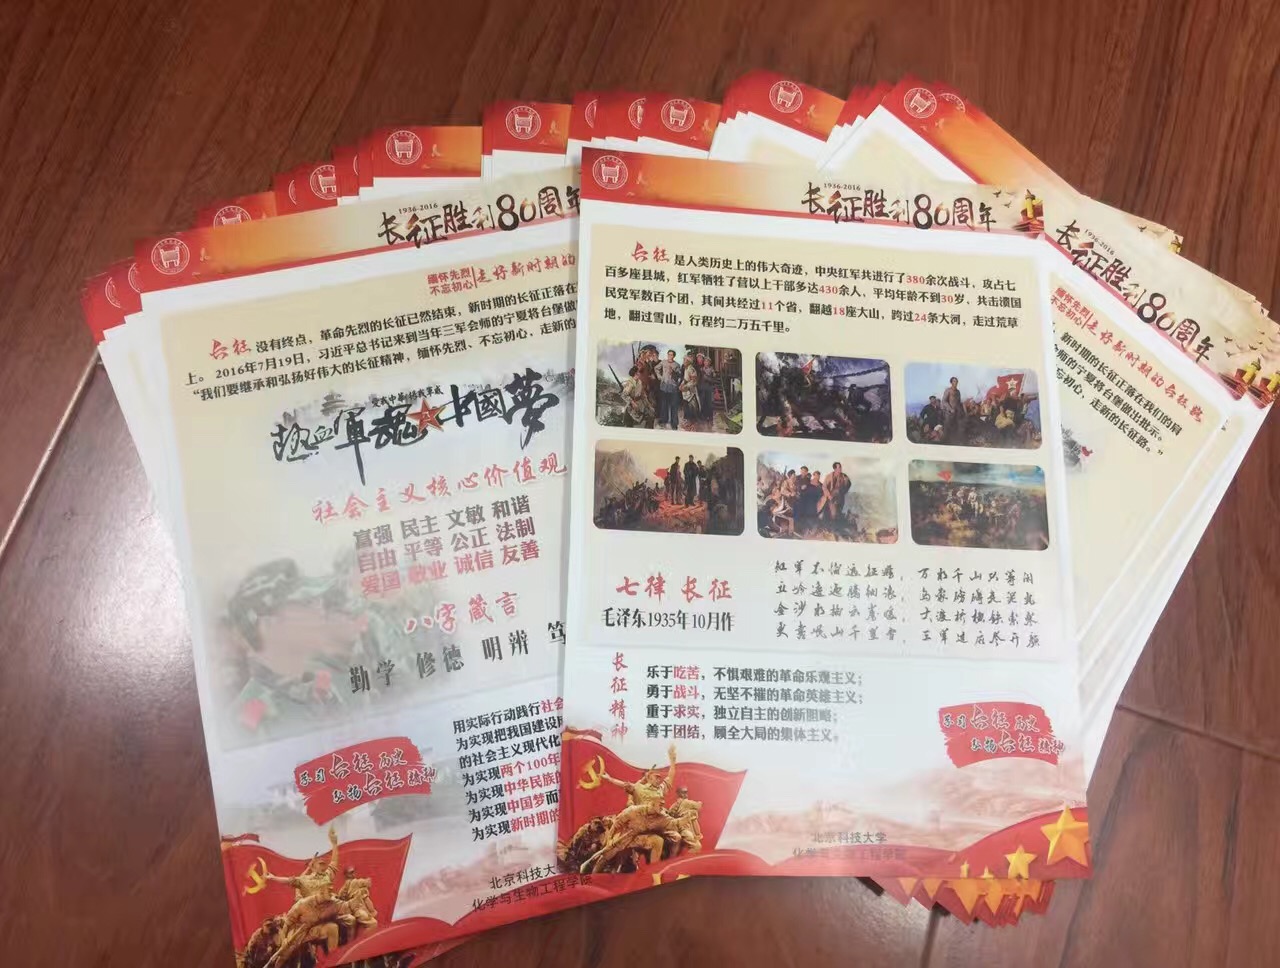 1936-2016
长征胜利80周年
缅怀先烈
不忘初心
走好新时期的
长征 没有终点，革命先烈的长征已然结束，新时期的长征正落在
上。2016年7月19日，习近平总书记来到当年三军会师的宁夏将台堡做
“我们要继承和弘扬好伟大的长征精神，缅怀先烈、不忘初心，走新的
热血軍魂 中國夢
社会主义核心价值观
富强 民主 文敏 和谐
自由 平等 公正 法制
爱国 敬业 诚信 友善
八字箴言
勤学 修德 明辨
用实际行动践行社会
为实现把我国建设
的社会主义现代化
为实现两个100年
为实现中华民族的
为实现中国梦而
为实现新时期的
学习长征历史
弘扬长征精神
北京科技大
化学与生物工程学院
1936-2016
长征胜利80周年
长征 是人类历史上的伟大奇迹，中央红军共进行了380余次战斗，攻占七
百多座县城，红军牺牲了营以上干部多达430余人，平均年龄不到30岁，共击溃国
民党军数百个团，其间共经过11个省，翻越18座大山，跨过24条大河，走过荒草
地，翻过雪山，行程约二万五千里。
七律 长征
毛泽东1935年10月作
红军不怕远征难，万水千山只等闲
五岭逶迤腾细浪，乌蒙磅礴走泥丸
金沙水拍云崖暖，大渡桥横铁索寒
更喜岷山千里雪，三军过后尽开颜
长征精神
乐于吃苦，不惧艰难的革命乐观主义；
勇于战斗，无坚不摧的革命英雄主义；
重于求实，独立自主的创新胆略；
善于团结，顾全大局的集体主义。
学习长征历史
弘扬长征精神
北京科技大学
化学与生物工程学院
1936-2016
长征胜利80周年
不忘初心
走好新时期的长征路
新时期的长征正落在我们的肩
师的宁夏将台堡做出批示。
忘初心，走新的长征路。”